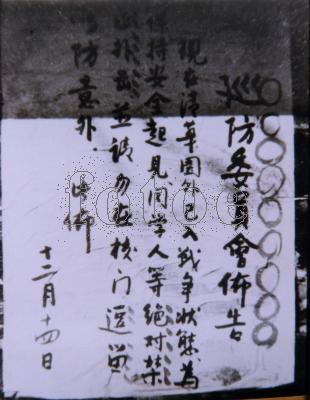 巡防委員會佈告
現在清華園外已入战争狀態為
保持安全起見同学人等絕对禁
止外出並請勿在校门逗留
以防意外．此佈
十二月十四日
fotoe